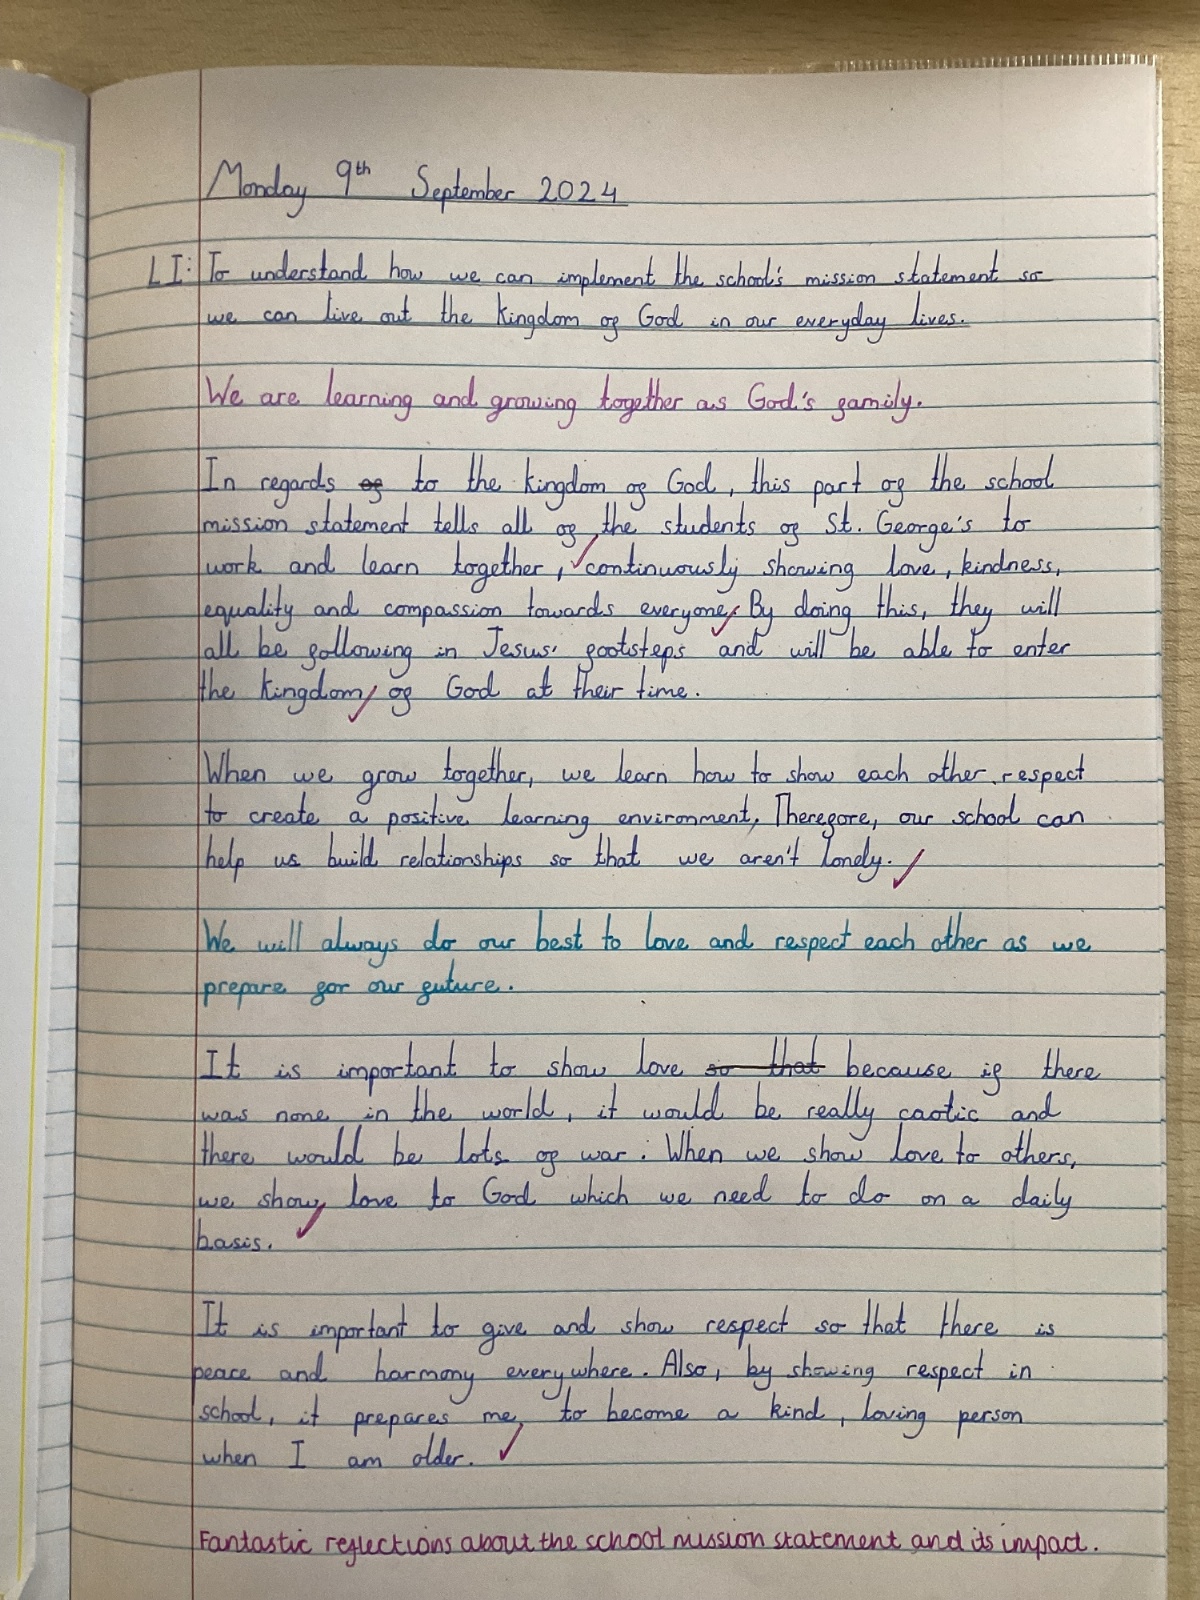 Monday 9th September 2024
LI: To understand how we can implement the school's mission statement so
we can live out the Kingdom of God in our everyday lives.
We are learning and growing together as God's family.
In regards of to the kingdom of God, this part of the school
mission statement tells all of the students of St. George's to
work and learn together, continuously showing love, kindness,
equality and compassion towards everyone. By doing this, they will
all be following in Jesus' footsteps and will be able to enter
the kingdom of God at their time.
When we grow together, we learn how to show each other respect
to create a positive learning environment. Therefore, our school can
help us build relationships so that we aren't lonely.
We will always do our best to love and respect each other as we
prepare for our future.
It is important to show love so that because if there
was none in the world, it would be really caotic and
there would be lots of war. When we show love to others,
we show love to God which we need to do on a daily
basis.
It is important to give and show respect so that there is
peace and harmony everywhere. Also, by showing respect in
school, it prepares me to become a kind, loving person
when I am older.
Fantastic reflections about the school mission statement and its impact.